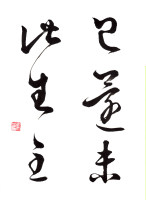 已 未
此生主